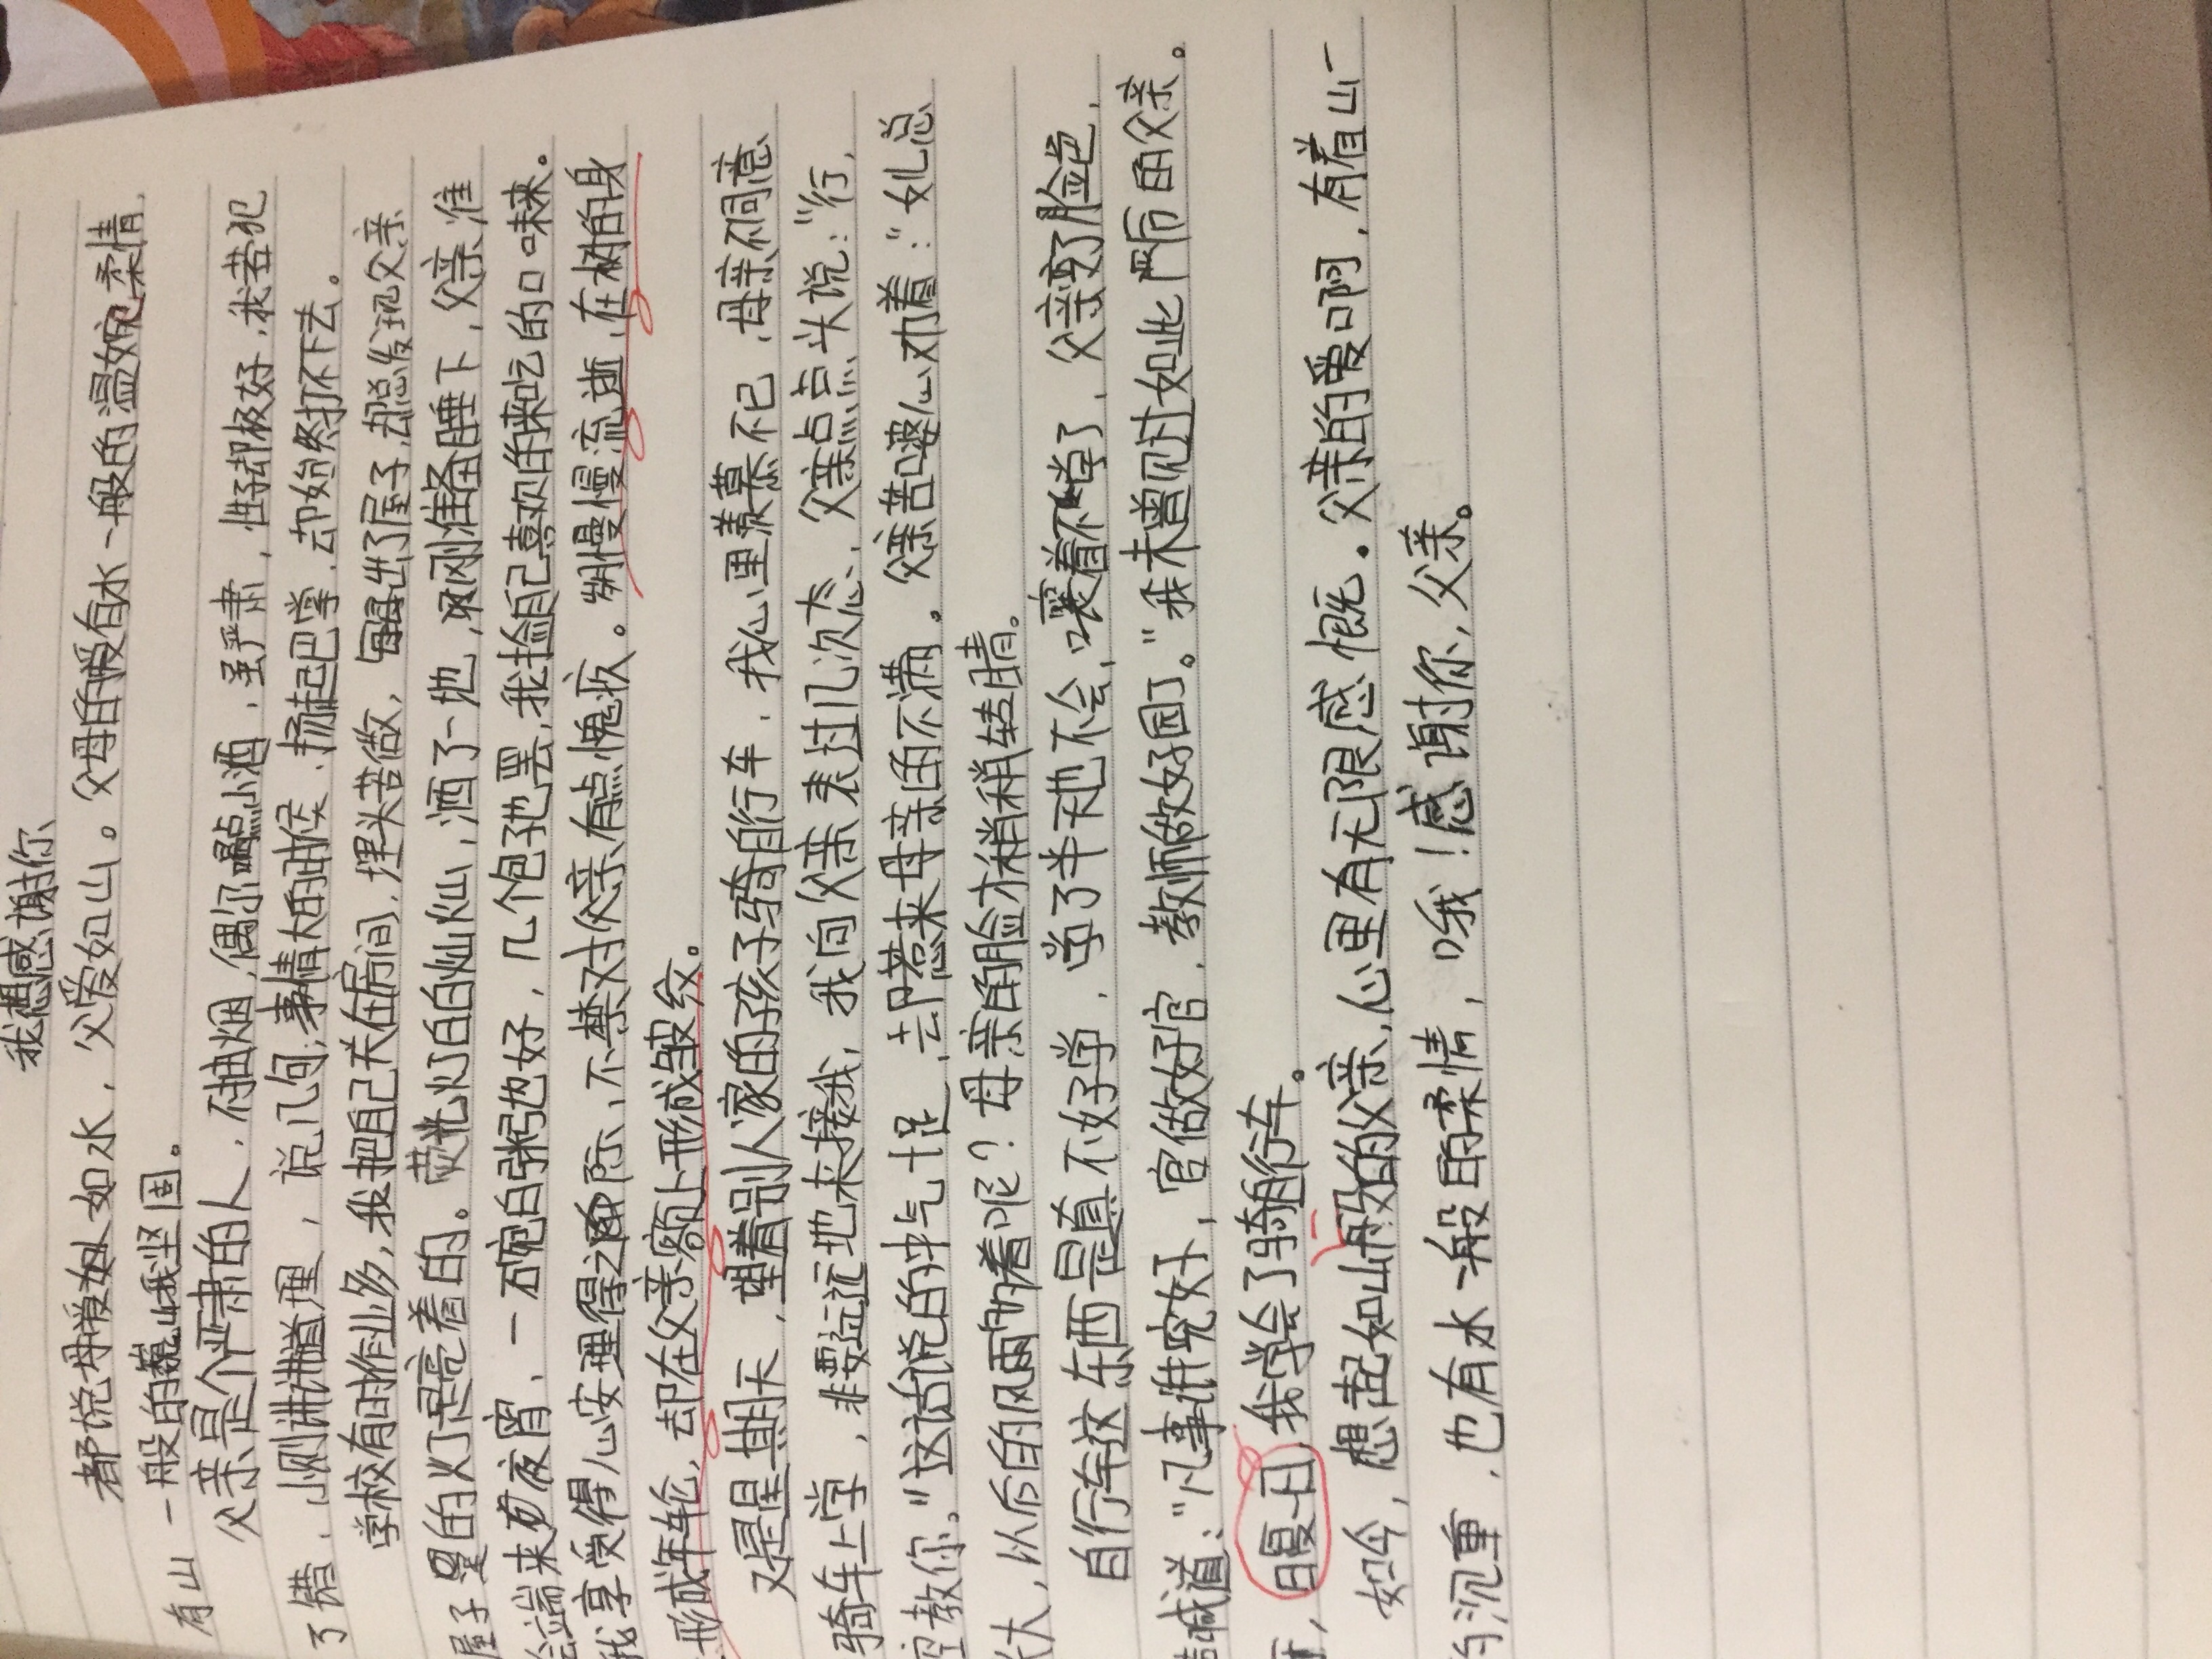 我想感谢你
都说母爱如水，父爱如山。父母的爱有水一般的温婉柔情，
有山一般的巍峨坚固。
父亲是个严肃的人，不抽烟，偶尔喝点小酒，虽严肃，性子却极好，我若犯
了错，小则讲讲道理，说几句；事情大的时候，扬起巴掌，却始终打不下去。
学校有时作业多，我把自己关在房间，埋头苦做，出了屋子，却总发现父亲
屋子里的灯是亮着的。荧光灯白灿灿，洒了一地，刚刚准备睡下，父亲准
会端来夜宵，一碗白粥也好，几个包子也罢，我捡自己喜欢的来吃的口味来。
我享受得心安理得之际，不禁对父亲有点愧疚。岁月慢慢流逝，在树的身
上形成年轮，却在父亲额上形成皱纹。
又是星期天，望着别人家的孩子骑自行车，我心里羡慕不已，母亲不同意
骑车上学，非要远远地来接我，我向父亲表过几次态，父亲点点头说：“行，
空教你。”这话说的中气十足，却惹来母亲的不满。父亲苦口婆心劝着：“女儿总
长大，以后的风雨呢？母亲的脸才稍稍转晴。
自行车这东西是真不好学，学了半天也不会，嚷着不学了，父亲变了脸色，
喊道：“凡事讲究好，官做好官，教师做好园丁。”我未曾见过如此严厉的父亲。
，日复一日，我学会了骑自行车。
如今，想起如山般的父亲，心里有无限感慨。父亲的爱啊，有着山一
的沉重，也有水一般的柔情，哦！感谢你，父亲。